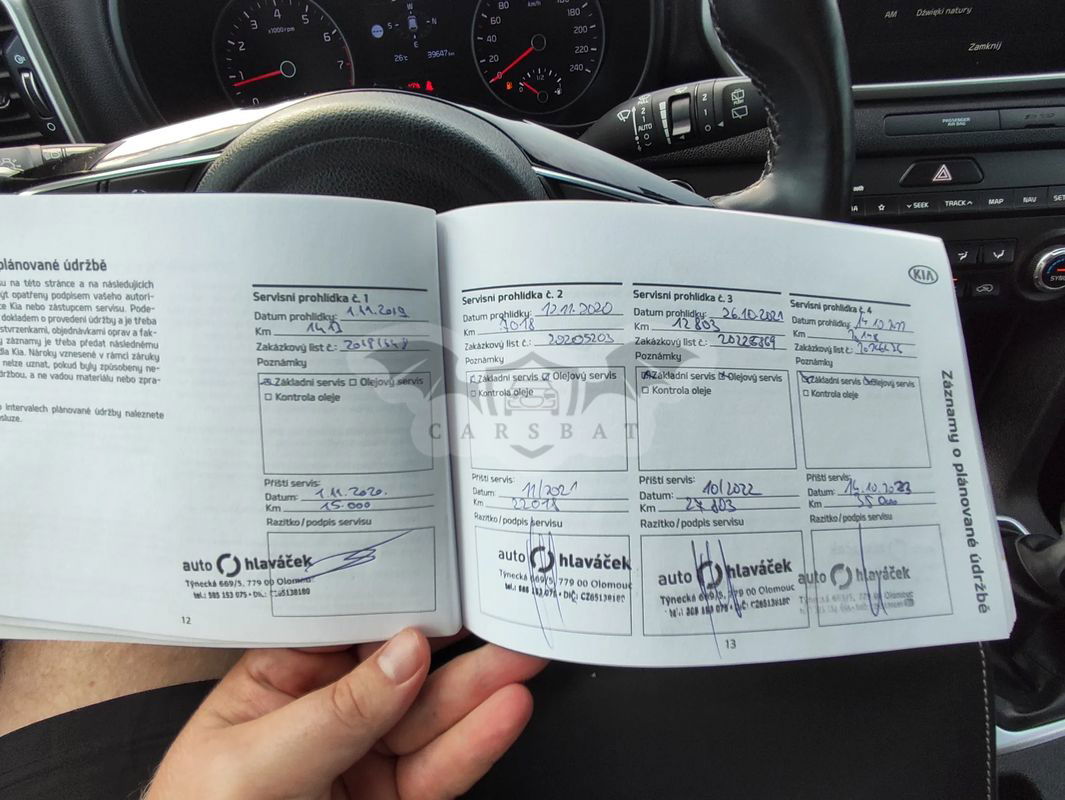 4
3
5
2
x1000rpm
6
1
7
0
W
S
N
E
26°c
39647 km
80
km/h
180
60
200
40
220
20
240
0
1/2
AM
Dźwięki natury
Zamknij
2
1
AUTO
0
2
1
0
PASSENGER
AIR BAG
SEEK
TRACK
MAP
NAV
plánované údržbě
su na této stránce a na následujících
ýt opatřeny podpisem vašeho autori-
e Kia nebo zástupcem servisu. Pode-
dokladem o provedení údržby a je třeba
stvrzenkami, objednávkami oprav a fak-
záznamy je třeba předat následnému
dla Kia. Nároky vznesené v rámci záruky
nelze uznat, pokud byly způsobeny ne-
držbou, a ne vadou materiálu nebo zpra-
o intervalech plánované údržby naleznete
Servisní prohlídka č. 1
Datum prohlídky: 1.11.2019
Km
Zakázkový list č.:
Poznámky
Základní servis Olejový servis
Kontrola oleje
Příští servis:
Datum: 1.11.2020.
Km 15.000
auto hlaváček
Týnecká 669/5, 779 00 Olomouc
tel.: 585 153 075 • DIČ: CZ65138180
12
KIA
Servisní prohlídka č. 2
Datum prohlídky: 12.11.2020
Km 7018
Zakázkový list č.: 20205203
Poznámky
Základní servis Olejový servis
Kontrola oleje
Příští servis:
Datum: 11/2021
Km 22018
Razítko/podpis servisu
auto hlaváček
Týnecká 669/5, 779 00 Olomouc
Servisní prohlídka č. 3
Datum prohlídky: 26.10.2021
Km 12803
Zakázkový list č.:
Poznámky
Základní servis Olejový servis
Kontrola oleje
Příští servis:
Datum: 10/2022
Km 27803
Razítko/podpis servisu
auto hlaváček
Týnecká 669/5, 779 00 Olomouc
Servisní prohlídka č. 4
Datum prohlídky:
Km
Zakázkový list č.:
Poznámky
Základní servis Olejový servis
Kontrola oleje
Příští servis:
Datum: 14.10.2023
Km
Razítko/podpis servisu
auto hlaváček
13
Záznamy o plánované údržbě
CARSBAT